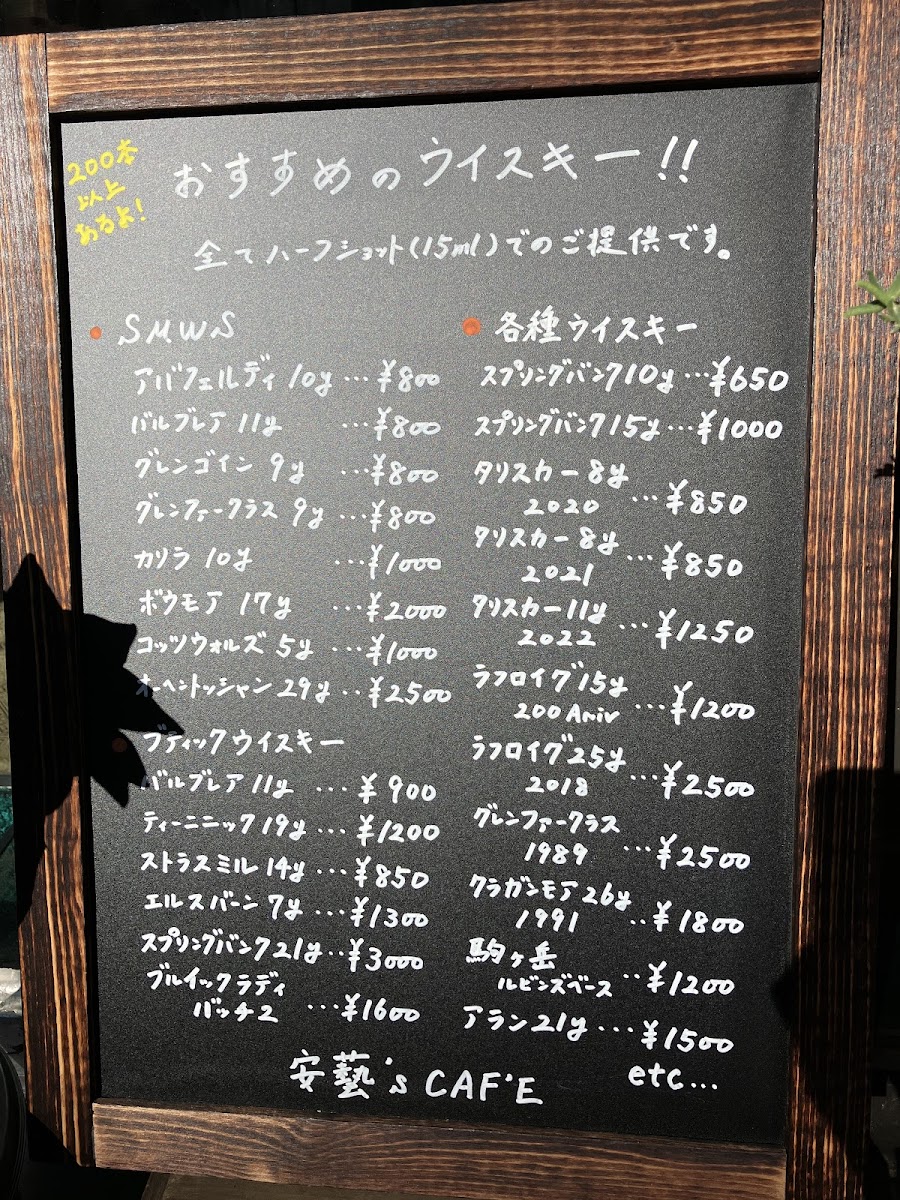 200本
以上
あるよ!
おすすめのウイスキー!!
全てハーフショット(15ml)でのご提供です。
SMWS
アバフェルディ 10y…¥800
バルブレア 11y …¥800
グレンゴイン 9y …¥800
グレンファークラス 9y …¥800
カリラ 10y …¥1000
ボウモア 17y …¥2000
コッツウォルズ 5y …¥1000
オーヘントッシャン 29y ‥¥2500
ブティックウイスキー
バルブレア 11y …¥900
ティーニニック 19y …¥1200
ストラスミル 14y …¥850
エルスバーン 7y …¥1300
スプリングバンク21y‥¥3000
ブルイックラディ
バッチ2 …¥1600
各種ウイスキー
スプリングバンク10y…¥650
スプリングバンク15y…¥1000
タリスカー 8y
2020 …¥850
タリスカー 8y
2021 …¥850
タリスカー 11y
2022 …¥1250
ラフロイグ 15y
200 Aniv …¥1200
ラフロイグ 25y
2018 …¥2500
グレンファークラス
1989 …¥2500
クラガンモア 26y
1991 ‥¥1800
駒ヶ岳
ルビンズベース ‥¥1200
アラン 21y…¥1500
etc...
安藝's CAF'E